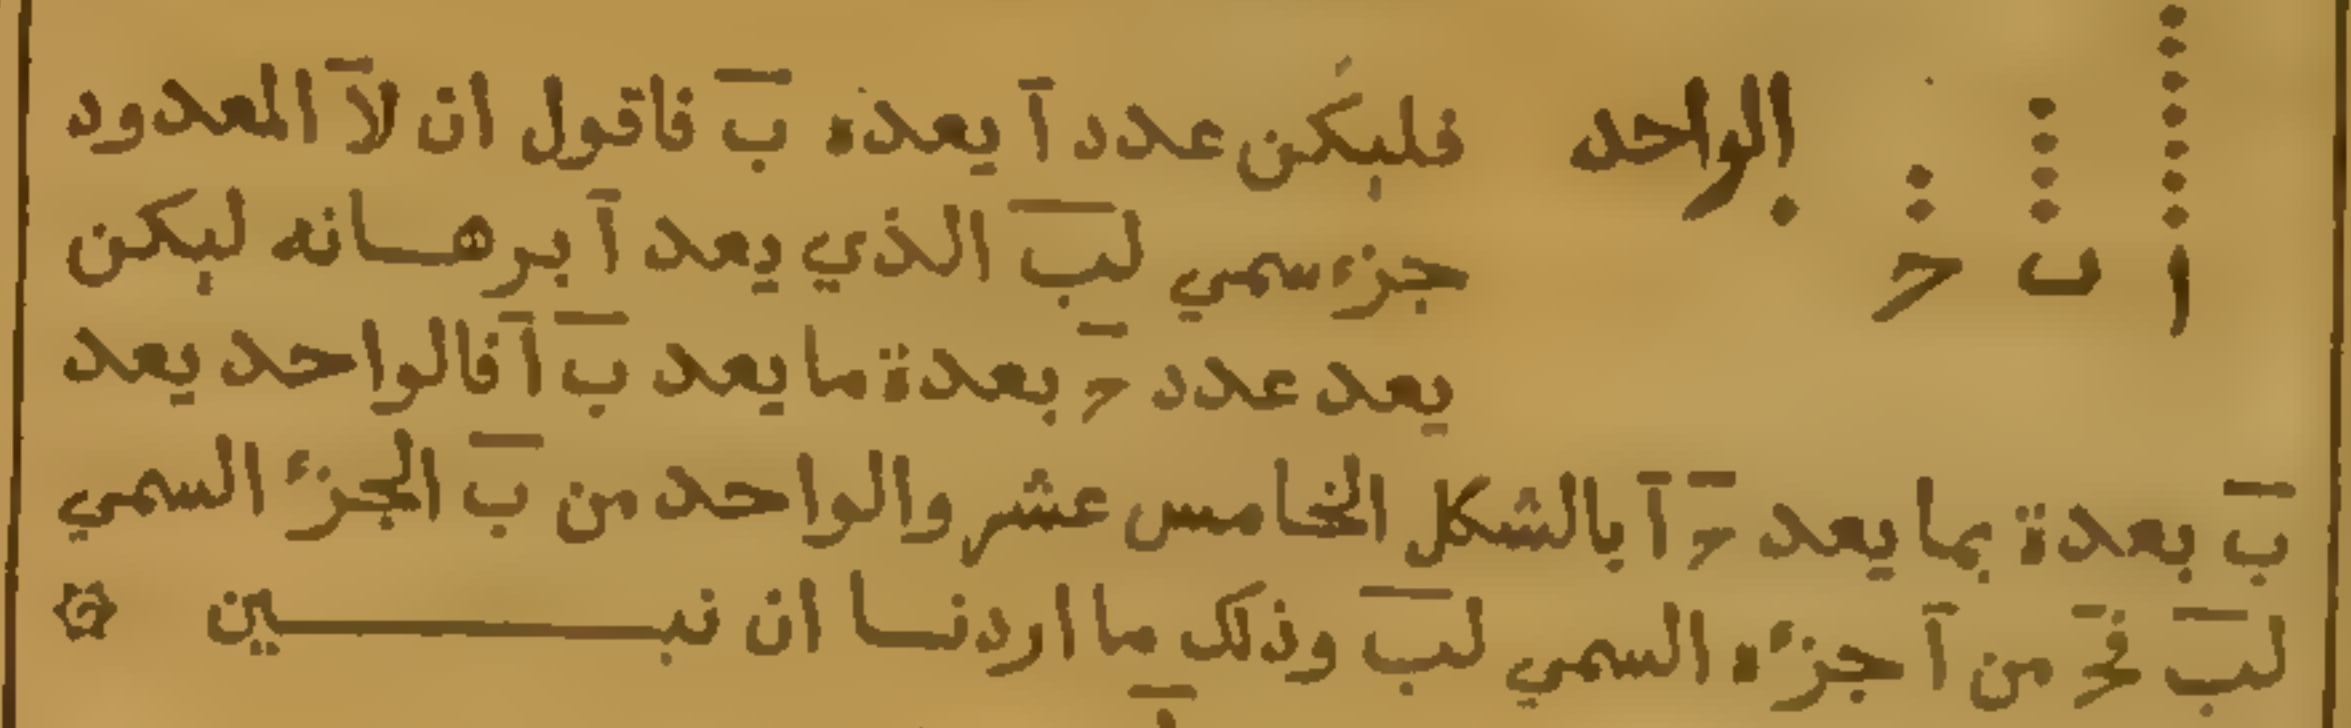 الواحد فليكن عدد آ يعده ب فاقول ان لآ المعدود
ا ب ح جزء سمي لب الذي يعد آ برهانه ليكن
يعد عدد ح بعدة ما يعد ب آ فالواحد يعد
ب بعدة بما يعد ح آ بالشكل الخامس عشر والواحد من ب الجزء السمي
لب فح من آ جزءه السمي لب وذلك ما اردنا ان نبين